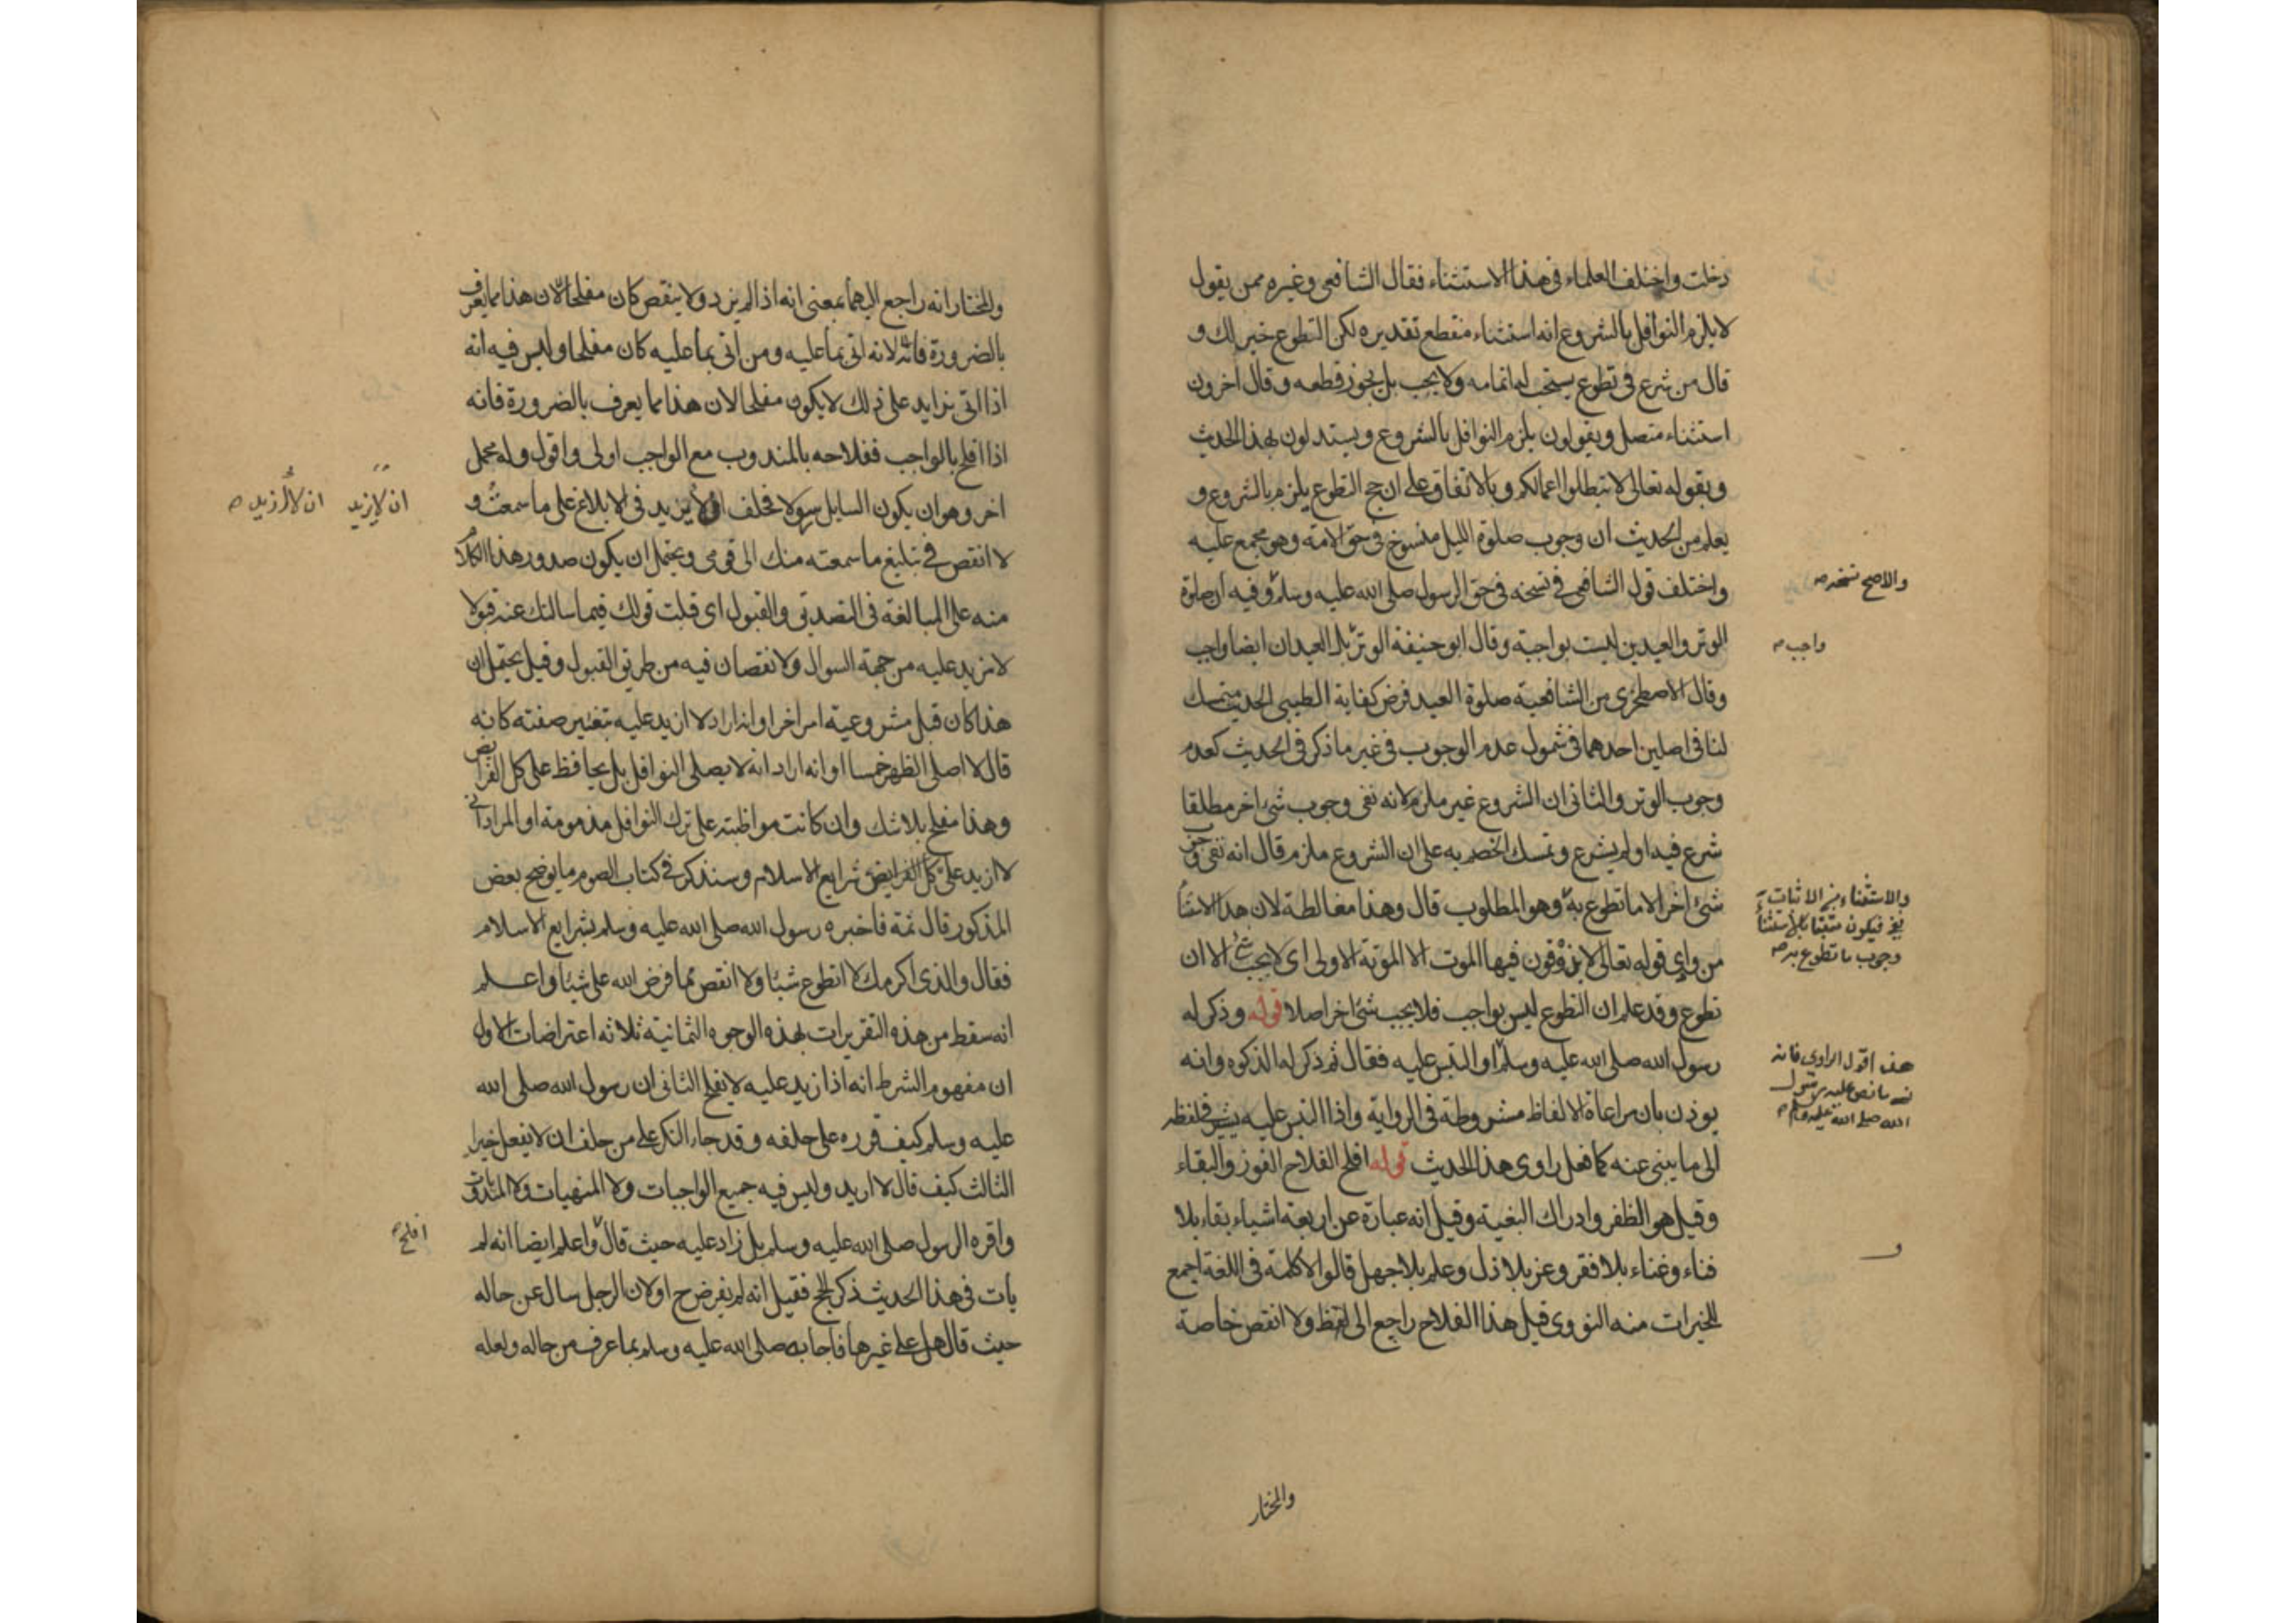 دخلت واختلف العلماء فى هذا الاستثناء فقال الشافعى وغيره ممن يقول
لا يلزم النوافل بالشروع انه استثناء منقطع تقديره لكن التطوع خير لك و
قال من شرع فى تطوع يستحب له اتمامه ولا يجب بل يجوز قطعه وقال اخرون
استثناء متصل ويقولون يلزم النوافل بالشروع ويستدلون بهذا الحديث
وبقوله تعالى لا تبطلوا اعمالكم وبالاتفاق على ان حج التطوع يلزم بالشروع و
يعلم من الحديث ان وجوب صلوة الليل منسوخ فى حق الامة وهو مجمع عليه
واختلف قول الشافعى فى نسخه فى حق الرسول صلى الله عليه وسلم وفيه ان صلوة
والاصح نسخه صح
الوتر والعيدين ليست بواجبة وقال ابو حنيفة الوتر بل العيدان ايضا واجب
واجب صح
وقال الاصطخرى من الشافعية صلوة العيد فرض كفاية الطيبى الحديث متمسك
لنا فى اصلين احدهما فى شمول عدم الوجوب فى غير ما ذكر فى الحديث كعدم
وجوب الوتر والثانى ان الشروع غير ملزم لانه نفى وجوب شئ اخر مطلقا
شرع فيه او لم يشرع وتمسك الخصم به على ان الشروع ملزم قال انه نفى وجوب
شئ اخر الا ما تطوع به وهو المطلوب قال وهذا مغالطة لان هذا الاستثناء
والاستثناء من الاثبات
فيكون مثبتا بالاستثناء
وجوب ما تطوع به صح
من وادى قوله تعالى لا يذوقون فيها الموت الا الموتة الاولى اى لا يجب شئ الا ان
تطوع وقد علم ان التطوع ليس بواجب فلا يجب شئ اخر اصلا قوله وذكر له
رسول الله صلى الله عليه وسلم او التبس عليه فقال ثم ذكر له الذكوه وانه
هذا قول الراوى فانه
نسى ما نص عليه رسول
الله صلى الله عليه وسلم صح
يوذن بان مراعاة الالفاظ مشروطة فى الرواية واذا التبس عليه يشير فى لفظه
الى ما ينبئ عنه كما فعل راوى هذا الحديث قوله افلح الفلاح الفوز والبقاء
وقيل هو الظفر وادراك البغية وقيل انه عبارة عن اربعة اشياء بقاء بلا
فناء وغناء بلا فقر وعز بلا ذل وعلم بلا جهل قالوا لا كلمة فى اللغة اجمع
و
للخيرات منه النووى قيل هذا الفلاح راجع الى لفظ ولا انقص خاصة
والمختار
والمختار انه راجع اليهما بمعنى انه اذا لم يزد ولا ينقص كان مفلحا لان هذا مما يعرف
بالضرورة فانه لانه اتى بما عليه ومن اتى بما عليه كان مفلحا وليس فيه انه
اذا اتى بزايد على ذلك لا يكون مفلحا لان هذا مما يعرف بالضرورة فانه
اذا افلح بالواجب ففلاحه بالمندوب مع الواجب اولى واقول وله محمل
اخر وهو ان يكون السايل رسولا فحلف ان لا يزيد فى الابلاغ على ما سمعت و
ان لا يزيد ان لا ازيد صح
لا انقص فى تبليغ ما سمعته منك الى قومى ويحتمل ان يكون صدور هذا الكلام
منه على المبالغة فى التصديق والقبول اى قبلت قولك فيما سالتك عنه قبولا
لا مزيد عليه من جهة السوال ولا نقصان فيه من طريق القبول وقيل يحتمل ان
هذا كان قبل مشروعية امر اخر او انه اراد لا ازيد عليه بتغيير صفته كانه
قال لا اصلى الظهر خمسا او انه اراد انه لا يصلى النوافل بل يحافظ على كل الفرائض
وهذا مفلح بلا شك وان كانت مواظبته على ترك النوافل مذمومة او المراد انى
لا ازيد على كل الفرايض شرايع الاسلام وسنذكر فى كتاب الصوم ما يوضح بعض
المذكور قال ثمة فاخبره رسول الله صلى الله عليه وسلم بشرايع الاسلام
فقال والذى اكرمك لا اتطوع شيئا ولا انقص مما فرض الله على شيئا واعلم
انه سقط من هذه التقريرات بهذه الوجوه الثمانية ثلاثة اعتراضات الاول
ان مفهوم الشرط انه اذا زيد عليه لا يفلح الثانى ان رسول الله صلى الله
عليه وسلم كيف قرره على حلفه وقد جاء النكر على من حلف ان لا يفعل خيرا
الثالث كيف قال لا ازيد وليس فيه جميع الواجبات ولا المنهيات ولا المندوبات
واقره الرسول صلى الله عليه وسلم بل زاد عليه حيث قال واعلم ايضا انه لم
افلح صح
يات فى هذا الحديث ذكر الحج فقيل انه لم يفرض ح او لان الرجل سال عن حاله
حيث قال هل على غيرها فاجابه صلى الله عليه وسلم بما عرف من حاله ولعله